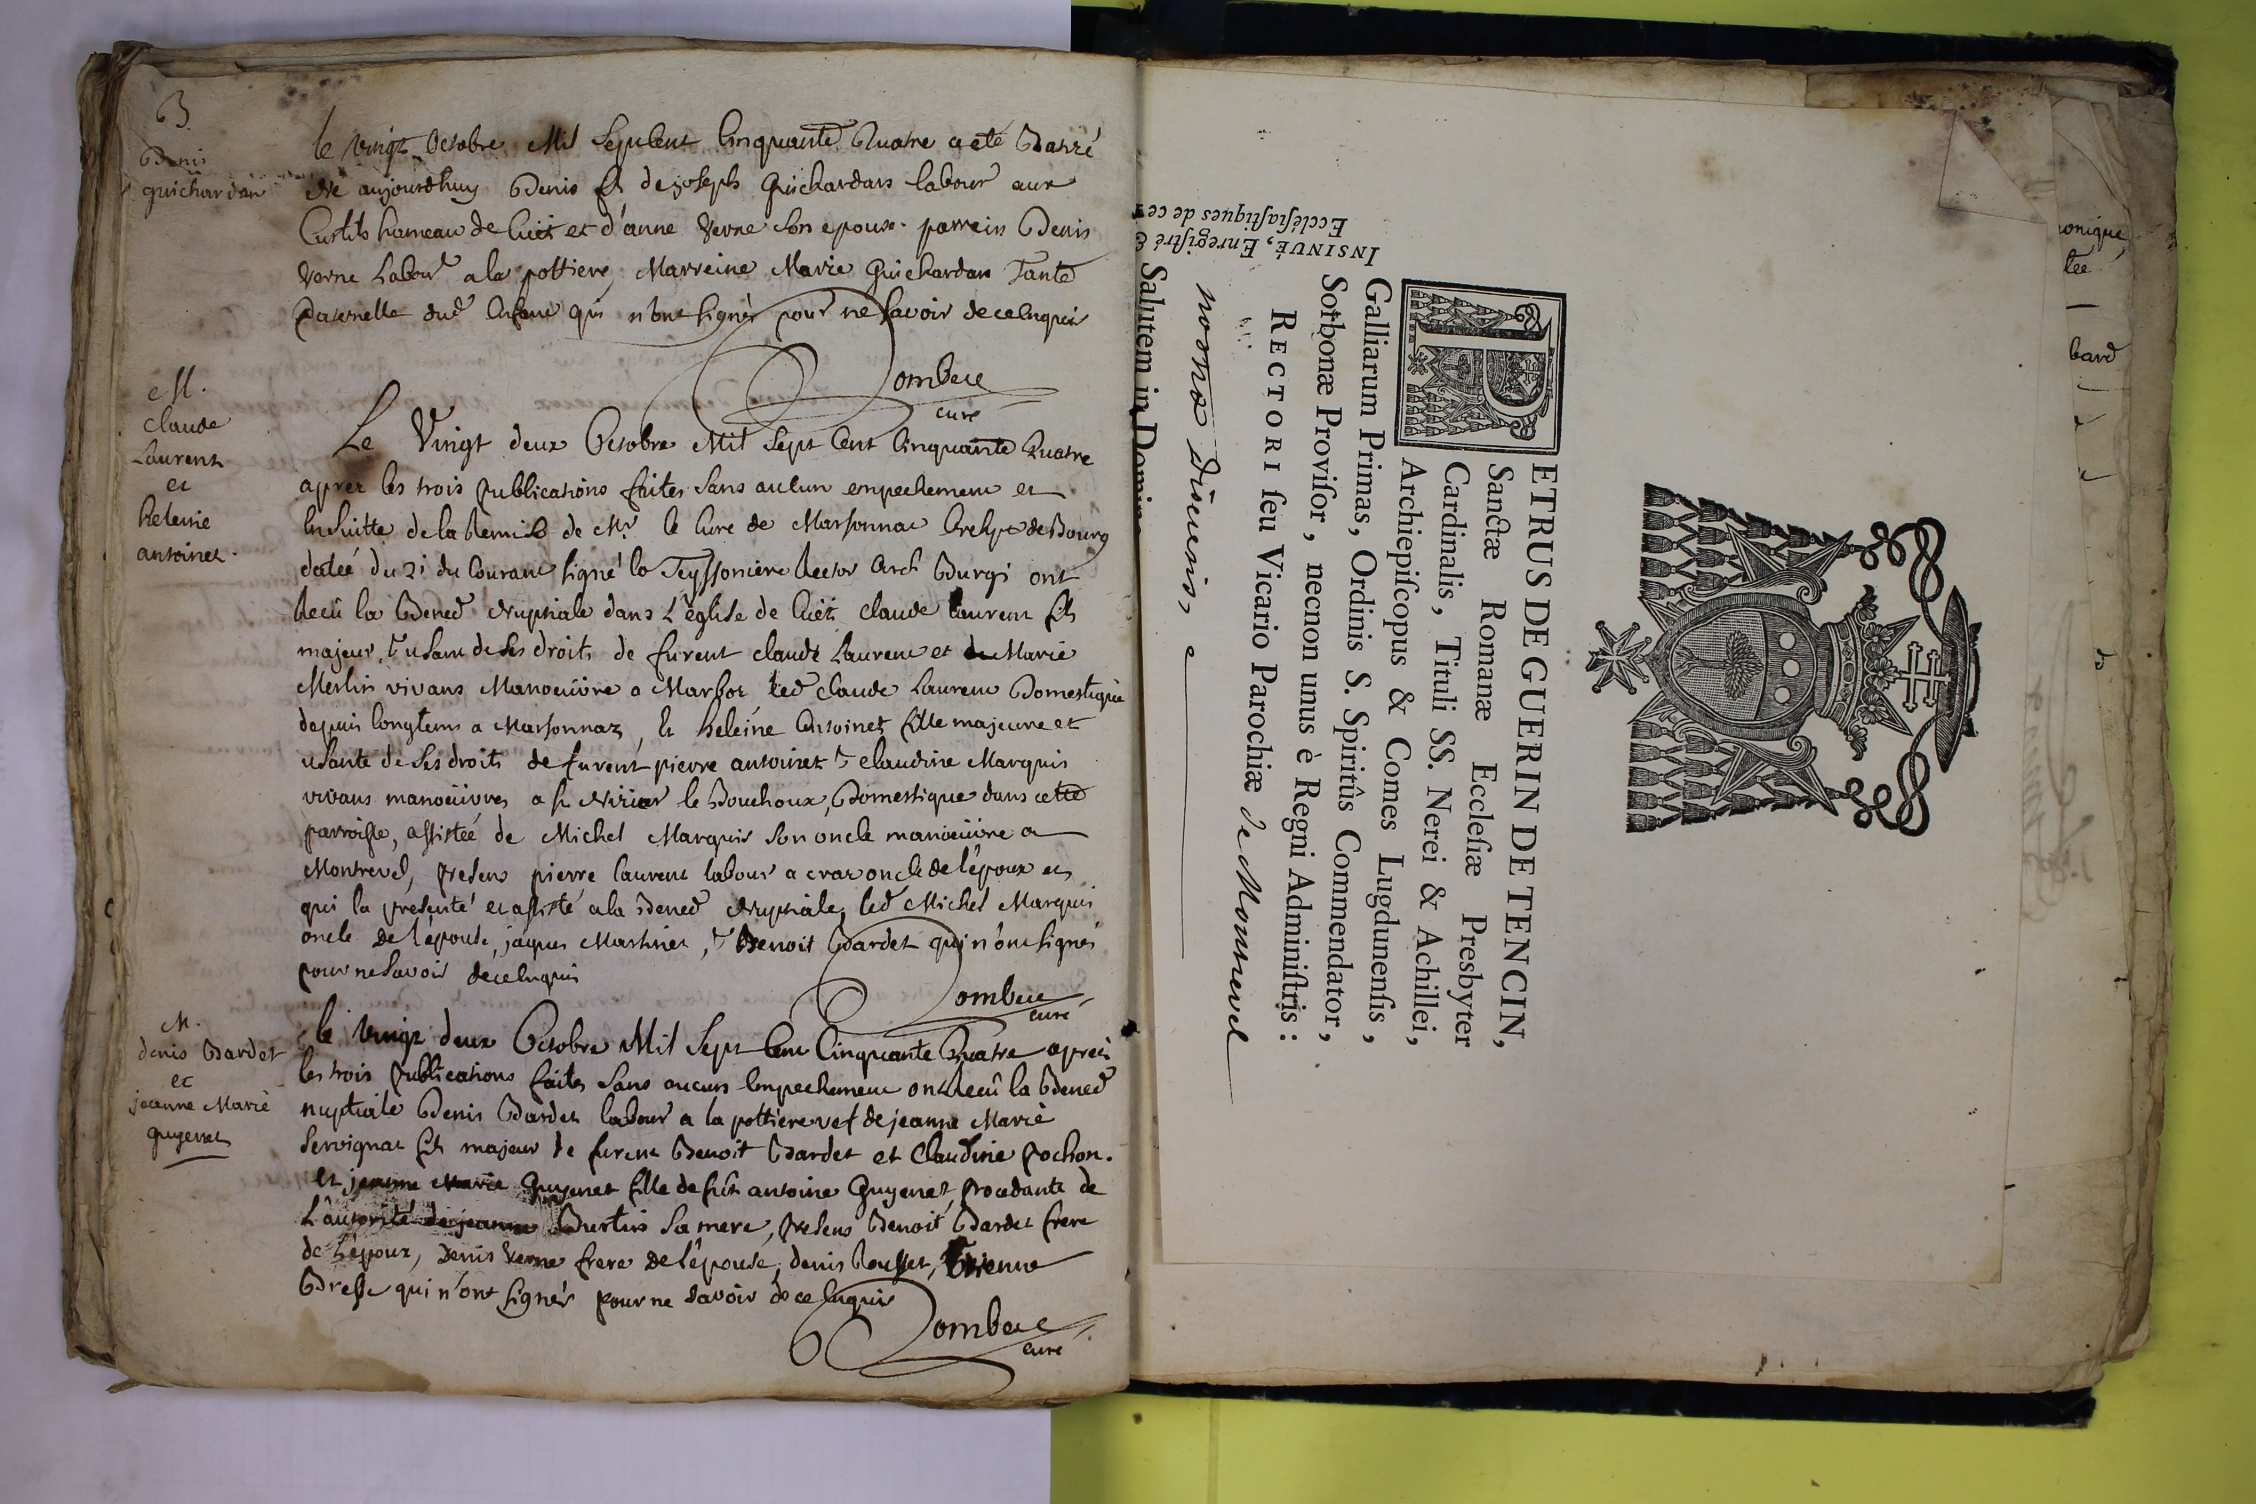 B.
Denis
guichardan
le vingt Octobre Mil Septcent Cinquante Quatre a eté Batisé
Né aujourdhuy Denis fs de joseph Guichardan labour aux
Curtils hameau de Cuët et d'anne Verne son epouse. parrein Denis
Verne Labour a la pottiere, Marreine Marie Guichardan Tante
Paternelle dud Enfant qui n'ont signés pour ne savoir de ce Enquis
Dombeÿ
curé
M.
claude
Laurent
et
heleine
antoinet.
Le Vingt deux Octobre Mil Sept Cent Cinquante Quatre
aprez les trois Publications faites Sans aucun empechement et
Ensuitte de la Remise de Mr. le Curé de Marsonnac de Bourg
datéé du 21 du Courant signé la Teyssoniere Rector Arch Burgi ont
Reçû la Bened Nuptiale dans L'église de Cuët claude Laurent fils
majeur, & usant de ses droits de furent claude Laurent et de Marie
Merlin vivans Manoeuvre a Marboz led claude Laurent Domestique
depuis longtems a Marsonnaz, Et heleine Antoinet fille majeure et
usante de ses droits de furent pierre antoinet & claudine Marquis
vivans manoeuvres a st Nizier le Bouchoux, Domestique dans cette
parroisse, assistéé de Michel Marquis son oncle manoeuvre a
Montrevel, Presens pierre laurent labour a craz oncle de l'époux et
qui la presenté et assisté a la Bened Nuptiale, led Michel Marquis
oncle de l'épouse, jaques Martinet, & Benoit Bardet qui n'ont signés
pour ne savoir de ce Enquis
Dombeÿ
curé
M.
denis Bardet
et
jeanne Marie
guyenet
le vingt deux Octobre Mil Sept Cent Cinquante Quatre aprez
les trois Publications faites Sans aucun Empechement ont Reçû la Bened
nuptiale Denis Bardet labour a la pottiere vef de jeanne Marie
Servignat fs majeur de furent Benoit Bardet et Claudine Pochon.
Et jeanne Marie Guyenet fille de fût antoine Guyenet, Procedante de
L'autorité de jeanne Burtin Sa mere, Presens Benoit Bardet frere
de l'époux, Denis Verne frere de l'épouse, denis Rousset, Etienne
Bresse qui n'ont signés pour ne savoir de ce Enquis
Dombeÿ
curé
PETRUS DE GUERIN DE TENCIN,
Sanctæ Romanæ Ecclesiæ Presbyter
Cardinalis, Tituli SS. Nerei & Achillei,
Archiepiscopus & Comes Lugdunensis,
Galliarum Primas, Ordinis S. Spiritûs Commendator,
Sorbonæ Provisor, necnon unus è Regni Administris:
RECTORI seu Vicario Parochiæ de Montrevel
nostræ Diœcesis,
Salutem in Domino
INSINUÉ, Enregistré &
Ecclésiastiques de ce
onique,
tée
bard